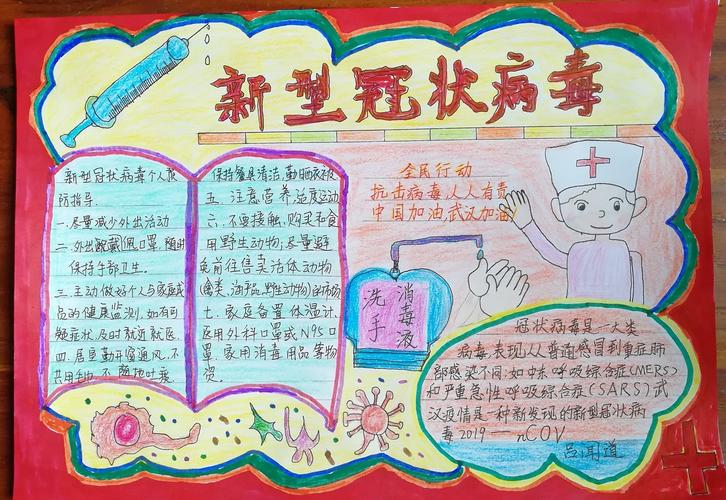 新型冠状病毒
新型冠状病毒个人预
防指导
一、尽量减少外出活动
二、外出佩戴口罩,随时
保持手部卫生。
三、主动做好个人与家庭成
员的健康监测,如有可
疑症状,及时就近就医。
四、居室勤开窗通风,不
共用毛巾,不随地吐痰
保持餐具清洁,勤晒衣被
五、注意营养适度运动
六、不要接触,购买和食
用野生动物;尽量避
免前往售卖活体动物
(禽类、海产品、野生动物)的市场
七、家庭备置体温计、
医用外科口罩或N95口
罩、家用消毒用品等物
资。
全民行动
抗击病毒人人有责
中国加油,武汉加油
消毒液
洗手
冠状病毒是一大类
病毒,表现从普通感冒到重症肺
部感染不同,如中东呼吸综合症(MERS)
和严重急性呼吸综合症(SARS)武
汉疫情是一种新发现的新型冠状病
毒2019——nCOV
吕闻道